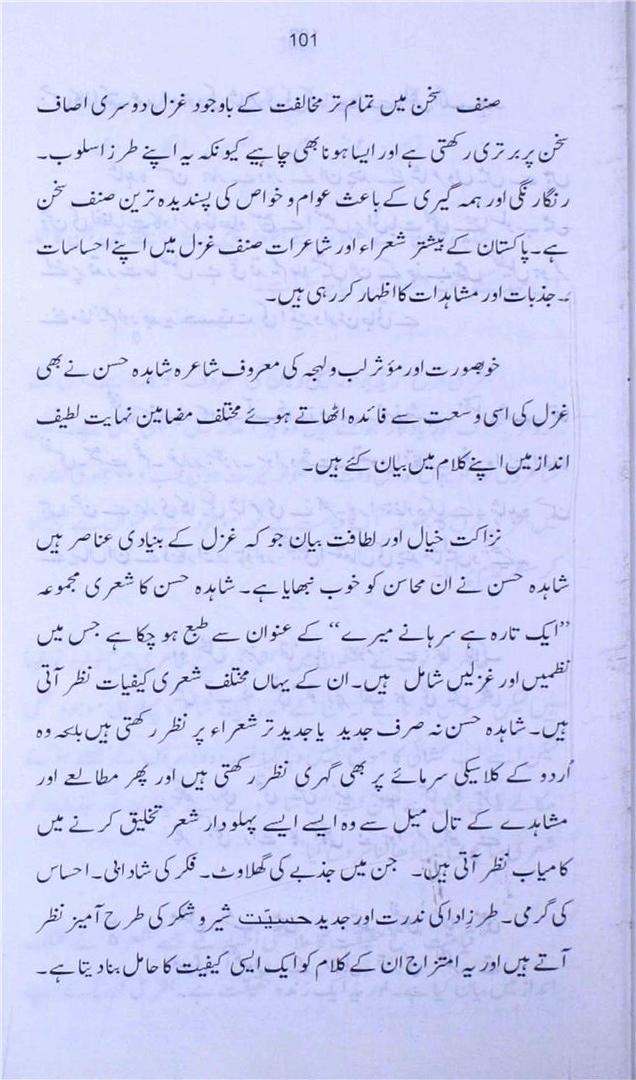 101
صنف سخن میں تمام تر مخالفت کے باوجود غزل دوسری اصاف
سخن پر برتری رکھتی ہے اور ایسا ہونا بھی چاہیے کیونکہ یہ اپنے طرز اسلوب۔
رنگارنگی اور ہمہ گیری کے باعث عوام و خواص کی پسندیدہ ترین صنف سخن
ہے۔ پاکستان کے بیشتر شعراء اور شاعرات صنف غزل میں اپنے احساسات
۔ جذبات اور مشاہدات کا اظہار کر رہی ہیں۔
خوبصورت اور مؤثر لب و لہجہ کی معروف شاعرہ شاہدہ حسن نے بھی
غزل کی اسی وسعت سے فائدہ اٹھاتے ہوئے مختلف مضامین نہایت لطیف
انداز میں اپنے کلام میں بیان کئے ہیں۔
نزاکت خیال اور لطافت بیان جو کہ غزل کے بنیادی عناصر ہیں
شاہدہ حسن نے ان محاسن کو خوب نبھایا ہے۔ شاہدہ حسن کا شعری مجموعہ
”ایک تارہ ہے سرہانے میرے“ کے عنوان سے طبع ہو چکا ہے جس میں
نظمیں اور غزلیں شامل ہیں۔ ان کے یہاں مختلف شعری کیفیات نظر آتی
ہیں۔ شاہدہ حسن نہ صرف جدید یا جدید تر شعراء پر نظر رکھتی ہیں بلکہ وہ
اُردو کے کلاسیکی سرمائے پر بھی گہری نظر رکھتی ہیں اور پھر مطالعے اور
مشاہدے کے تال میل سے وہ ایسے ایسے پہلودار شعر تخلیق کرنے میں
کامیاب نظر آتی ہیں۔ جن میں جذبے کی گھلاوٹ۔ فکر کی شادابی۔ احساس
کی گرمی۔ طرزِ ادا کی ندرت اور جدید حسیّت شیر و شکر کی طرح آمیز نظر
آتے ہیں اور یہ امتزاج ان کے کلام کو ایک ایسی کیفیت کا حامل بنا دیتا ہے۔